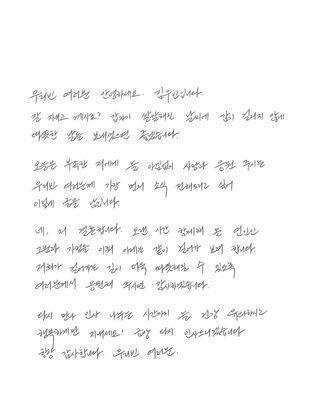 우리빈 여러분 안녕하세요. 김우빈입니다.
잘 지내고 계시죠? 갑자기 쌀쌀해진 날씨에 감기 걸리지 않게
따뜻한 날들 보내셨으면 좋겠습니다.
오늘은 부족한 저에게 늘 아낌없이 사랑과 응원 주시는
우리빈 여러분께 가장 먼저 소식 전해드리고 싶어
이렇게 글을 남깁니다.
네, 저 결혼합니다. 오랜 시간 함께해 온 연인인
그분과 가정을 이뤄 이제는 같이 걸어가 보려 합니다.
저희가 걸어가는 길이 더욱 따뜻해질 수 있도록
여러분께서 응원해 주시면 감사하겠습니다.
다시 만나 인사 나누는 시간까지 늘 건강 유의하시고
행복하게만 지내세요! 금방 다시 인사드리겠습니다
항상 감사합니다. 우리빈 여러분.